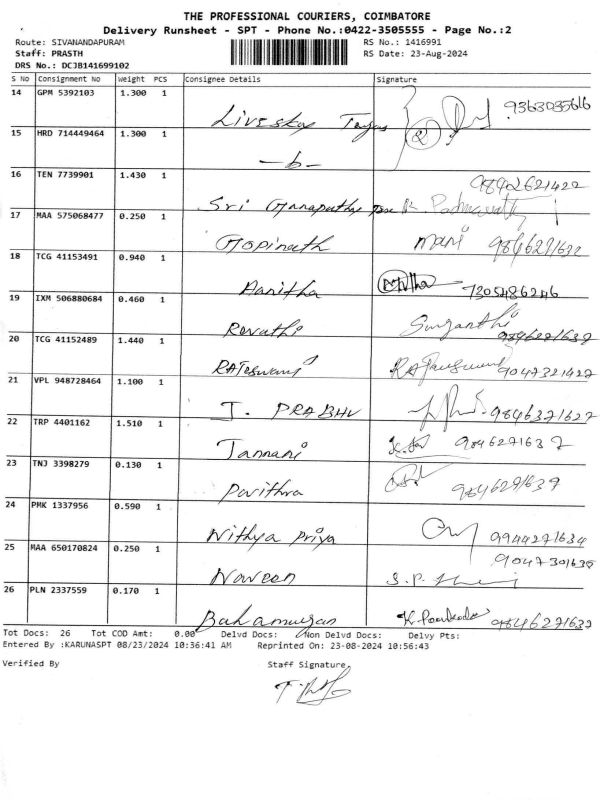 THE PROFESSIONAL COURIERS, COIMBATORE
Delivery Runsheet - SPT - Phone No.:0422-3505555 - Page No.:2
Route: SIVANANDAPURAM RS No.: 1416991
Staff: PRASTH RS Date: 23-Aug-2024
DRS No.: DCJB141699102
S No Consignment No Weight PCS Consignee Details Signature
14 GPM 5392103 1.300 1
15 HRD 714449464 1.300 1
-b-
16 TEN 7739901 1.430 1 9842621422
Sri Ganapathy
17 MAA 575068477 0.250 1
Gopinath mani 9846291632
18 TCG 41153491 0.940 1
Hanitha 7305486246
19 IXM 506880684 0.460 1
Revathi Suganthi 9846271637
20 TCG 41152489 1.440 1
RAJeswari 9047321427
21 VPL 948728464 1.100 1
J. PRABHU 9846371627
22 TRP 4401162 1.510 1
Jannani 9846271637
23 TNJ 3398279 0.130 1
Pavithra 984629/637
24 PMK 1337956 0.590 1
Nithya priya 9944271634
25 MAA 650170824 0.250 1 9047301635
Naveen
26 PLN 2337559 0.170 1
Balamurugan 9846271632
Tot Docs: 26 Tot COD Amt: 0.00 Delvd Docs: Non Delvd Docs: Delvy Pts:
Entered By :KARUNASPT 08/23/2024 10:36:41 AM Reprinted On: 23-08-2024 10:56:43
Verified By Staff Signature